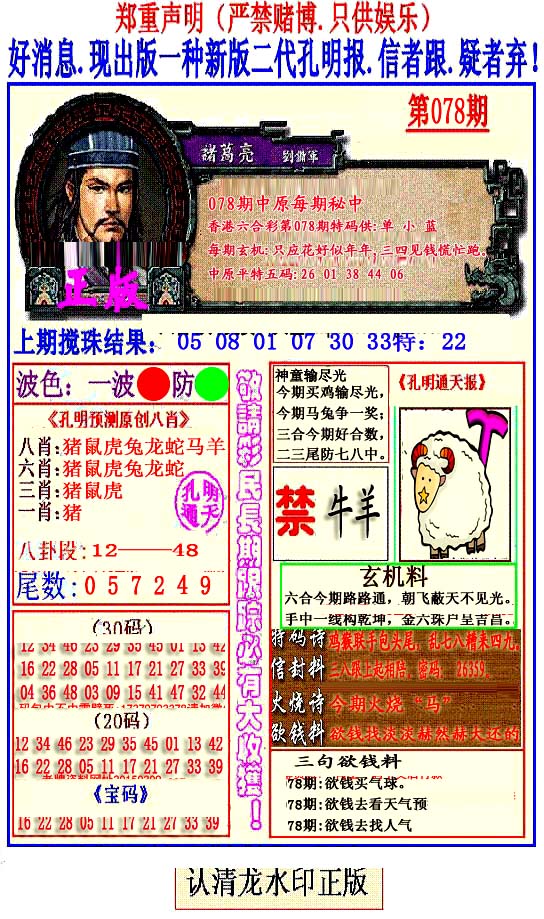 郑重声明（严禁赌博.只供娱乐）
好消息.现出版一种新版二代孔明报.信者跟.疑者弃！
第078期
諸葛亮 劉備軍
078期中原每期秘中
香港六合彩第078期特码供:单 小 蓝
每期玄机:只应花好似年年,三四见钱慌忙跑。
中原平特五码:26 01 38 44 06
正版
上期搅珠结果: 05 08 01 07 30 33特: 22
波色: 一波 防
《孔明预测原创八肖》
八肖:猪鼠虎兔龙蛇马羊
六肖:猪鼠虎兔龙蛇
三肖:猪鼠虎
一肖:猪
孔明
通天
八卦段:12——48
尾数:0 5 7 2 4 9
(30码)
12 34 46 23 29 35 45 01 13 42
16 22 28 05 11 17 21 27 33 39
04 36 48 03 09 15 41 47 32 44
(20码)
12 34 46 23 29 35 45 01 13 42
16 22 28 05 11 17 21 27 33 39
《宝码》
16 22 28 05 11 17 21 27 33 39
敬請彩民長期跟踪必有大收獲！
神童输尽光
今期买鸡输尽光，
今期马兔争一奖；
三合今期好合数，
二三尾防七八中。
《孔明通天报》
禁 牛羊
玄机料
六合今期路路通，朝飞蔽天不见光。
手中一线构乾坤，金六珠户呈吉昌。
特码诗 鸡猴联手包头尾，乱七八糟来四九
信封料 三八跟上起相陪，密码：26359
火烧诗 今期火烧“马”
欲钱料 欲钱找淡淡赫然赫大还的
三句欲钱料
078期:欲钱买气球。
078期:欲钱去看天气预
078期:欲钱去找人气
认清龙水印正版